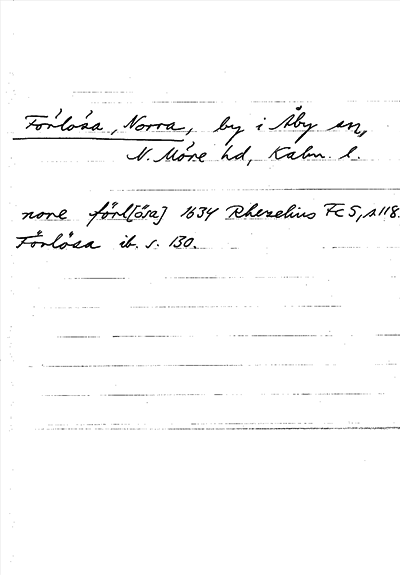 Förlösa, Norra, by i Åby sn,
N. Möre hd, Kalm. l.
nore förl[ösa] 1634 Rhezelius Fc 5, s. 118.
Förlösa ib. s. 130.